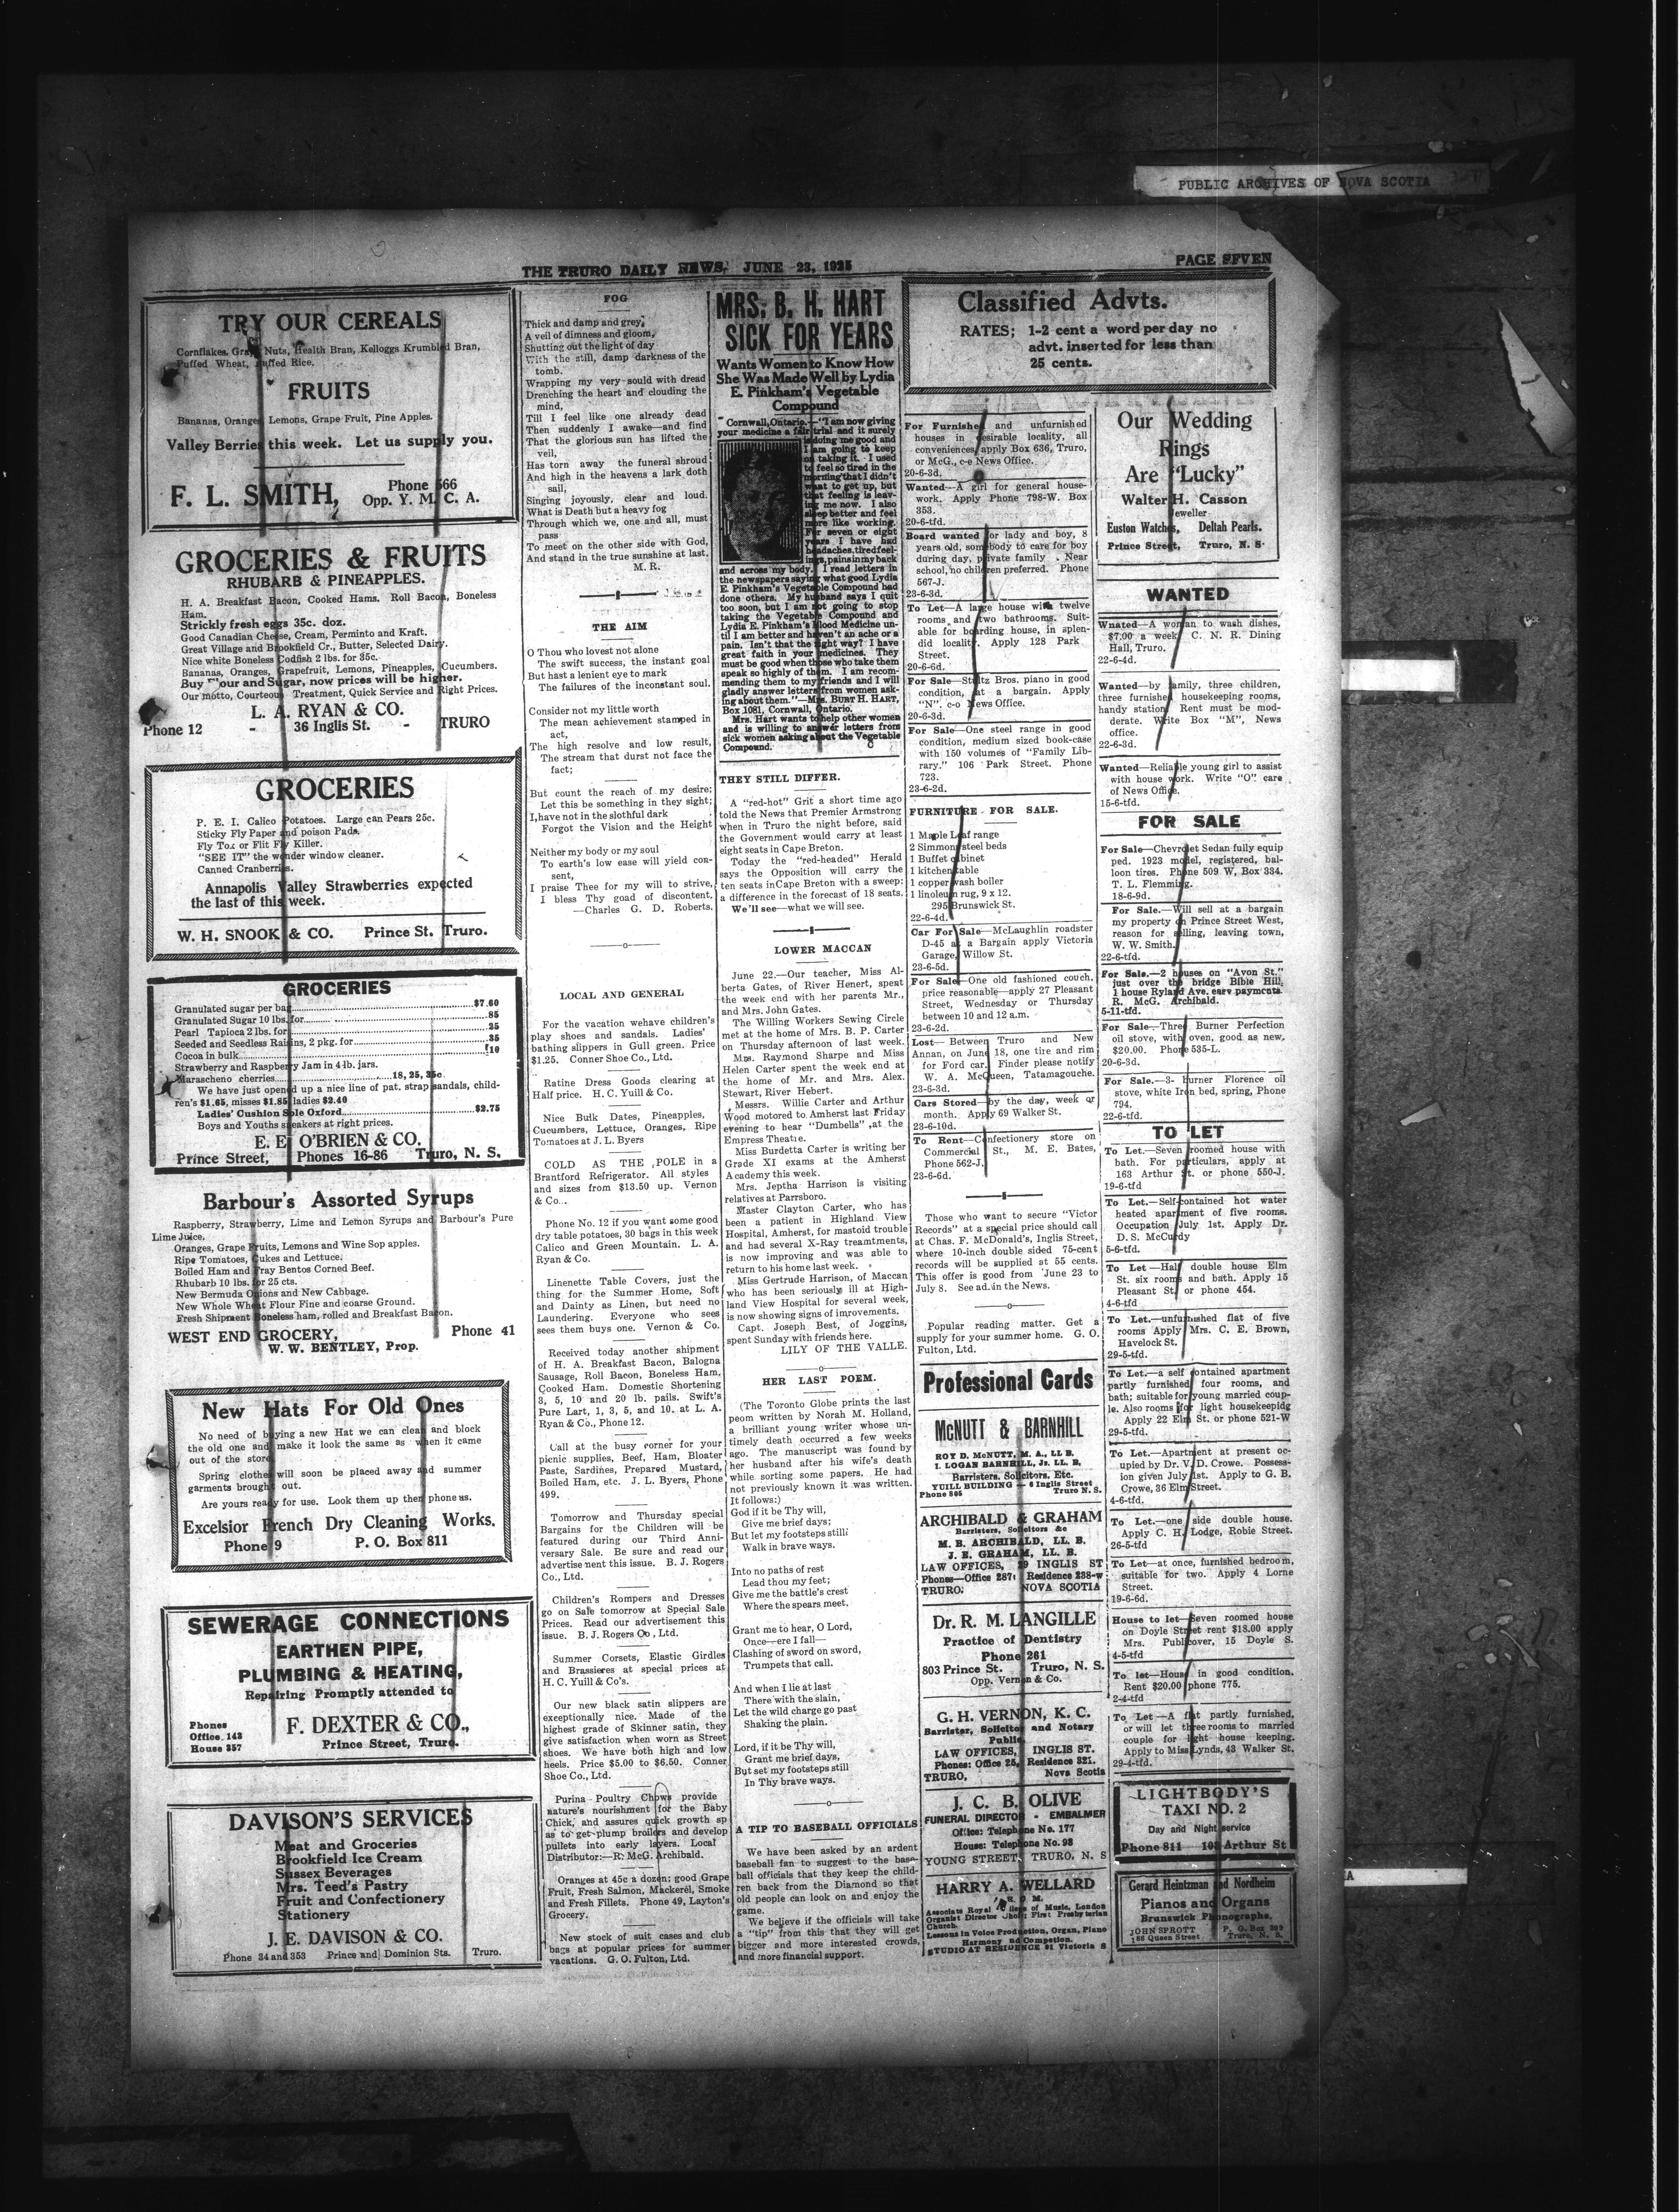 PUBLIC ARCHIVES OF NOVA SCOTIA
THE TRURO DAILY NEWS, JUNE 23, 1925
PAGE SEVEN
TRY OUR CEREALS
Cornflakes, Grape Nuts, Health Bran, Kelloggs Krumbled Bran,
Puffed Wheat, Puffed Rice.
FRUITS
Bananas, Oranges, Lemons, Grape Fruit, Pine Apples.
Valley Berries this week. Let us supply you.
F. L. SMITH,
Phone 566
Opp. Y. M. C. A.
GROCERIES & FRUITS
RHUBARB & PINEAPPLES.
H. A. Breakfast Bacon, Cooked Hams. Roll Bacon, Boneless
Ham.
Strictly fresh eggs 35c. doz.
Good Canadian Cheese, Cream, Perminto and Kraft.
Great Village and Brookfield Cr., Butter, Selected Dairy.
Nice white Boneless Codfish 2 lbs. for 35c.
Bananas, Oranges, Grapefruit, Lemons, Pineapples, Cucumbers.
Buy Flour and Sugar, now prices will be higher.
Our motto, Courteous Treatment, Quick Service and Right Prices.
L. A. RYAN & CO.
Phone 12 - 36 Inglis St. - TRURO
GROCERIES
P. E. I. Calico Potatoes. Large can Pears 25c.
Sticky Fly Paper and poison Pads.
Fly Tox or Flit Fly Killer.
"SEE IT" the wonder window cleaner.
Canned Cranberries.
Annapolis Valley Strawberries expected
the last of this week.
W. H. SNOOK & CO. Prince St. Truro.
GROCERIES
Granulated sugar per bag $7.60
Granulated Sugar 10 lbs. for 85
Pearl Tapioca 2 lbs. for 25
Seeded and Seedless Raisins, 2 pkg. for 35
Cocoa in bulk 10
Strawberry and Raspberry Jam in 4 lb. jars.
Marascheno cherries 18, 25, 35c
We have just opened up a nice line of pat. strap sandals, child-
ren's $1.65, misses $1.85 ladies $2.40
Ladies' Cushion Sole Oxford $2.75
Boys and Youths sneakers at right prices.
E. E. O'BRIEN & CO.
Prince Street, Phones 16-86 Truro, N. S.
Barbour's Assorted Syrups
Raspberry, Strawberry, Lime and Lemon Syrups and Barbour's Pure
Lime Juice.
Oranges, Grape Fruits, Lemons and Wine Sop apples.
Ripe Tomatoes, Cukes and Lettuce.
Boiled Ham and Fray Bentos Corned Beef.
Rhubarb 10 lbs. for 25 cts.
New Bermuda Onions and New Cabbage.
New Whole Wheat Flour Fine and coarse Ground.
Fresh Shipment Boneless ham, rolled and Breakfast Bacon.
WEST END GROCERY, Phone 41
W. W. BENTLEY, Prop.
New Hats For Old Ones
No need of buying a new Hat we can clean and block
the old one and make it look the same as when it came
out of the store.
Spring clothes will soon be placed away and summer
garments brought out.
Are yours ready for use. Look them up then phone us.
Excelsior French Dry Cleaning Works.
Phone 9 P. O. Box 811
SEWERAGE CONNECTIONS
EARTHEN PIPE,
PLUMBING & HEATING,
Repairing Promptly attended to
Phones
Office 143
House 357
F. DEXTER & CO.,
Prince Street, Truro.
DAVISON'S SERVICES
Meat and Groceries
Brookfield Ice Cream
Sussex Beverages
Mrs. Teed's Pastry
Fruit and Confectionery
Stationery
J. E. DAVISON & CO.
Phone 34 and 353 Prince and Dominion Sts. Truro.
FOG
Thick and damp and grey,
A veil of dimness and gloom,
Shutting out the light of day
With the still, damp darkness of the
tomb.
Wrapping my very sould with dread
Drenching the heart and clouding the
mind,
Till I feel like one already dead
Then suddenly I awake—and find
That the glorious sun has lifted the
veil,
Has torn away the funeral shroud
And high in the heavens a lark doth
sail,
Singing joyously, clear and loud.
What is Death but a heavy fog
Through which we, one and all, must
pass
To meet on the other side with God,
And stand in the true sunshine at last.
M. R.
THE AIM
O Thou who lovest not alone
The swift success, the instant goal
But hast a lenient eye to mark
The failures of the inconstant soul.
Consider not my little worth
The mean achievement stamped in
act,
The high resolve and low result,
The stream that durst not face the
fact;
But count the reach of my desire;
Let this be something in they sight;
I,have not in the slothful dark
Forgot the Vision and the Height
Neither my body or my soul
To earth's low ease will yield con-
sent,
I praise Thee for my will to strive,
I bless Thy goad of discontent.
—Charles G. D. Roberts.
LOCAL AND GENERAL
For the vacation wehave children's
play shoes and sandals. Ladies'
bathing slippers in Gull green. Price
$1.25. Conner Shoe Co., Ltd.
Ratine Dress Goods clearing at
Half price. H. C. Yuill & Co.
Nice Bulk Dates, Pineapples,
Cucumbers, Lettuce, Oranges, Ripe
Tomatoes at J. L. Byers
COLD AS THE POLE in a
Brantford Refrigerator. All styles
and sizes from $13.50 up. Vernon
& Co..
Phone No. 12 if you want some good
dry table potatoes, 30 bags in this week
Calico and Green Mountain. L. A.
Ryan & Co.
Linenette Table Covers, just the
thing for the Summer Home, Soft
and Dainty as Linen, but need no
Laundering. Everyone who sees
sees them buys one. Vernon & Co.
Received today another shipment
of H. A. Breakfast Bacon, Balogna
Sausage, Roll Bacon, Boneless Ham,
Cooked Ham. Domestic Shortening
3, 5, 10 and 20 lb. pails. Swift's
Pure Lart, 1, 3, 5, and 10. at L. A.
Ryan & Co., Phone 12.
Call at the busy corner for your
picnic supplies, Beef, Ham, Bloater
Paste, Sardines, Prepared Mustard,
Boiled Ham, etc. J. L. Byers, Phone
499.
Tomorrow and Thursday special
Bargains for the Children will be
featured during our Third Anni-
versary Sale. Be sure and read our
advertisement this issue. B. J. Rogers
Co., Ltd.
Children's Rompers and Dresses
go on Sale tomorrow at Special Sale
Prices. Read our advertisement this
issue. B. J. Rogers Co., Ltd.
Summer Corsets, Elastic Girdles
and Brassieres at special prices at
H. C. Yuill & Co's.
Our new black satin slippers are
exceptionally nice. Made of the
highest grade of Skinner satin, they
give satisfaction when worn as Street
shoes. We have both high and low
heels. Price $5.00 to $6.50. Conner
Shoe Co., Ltd.
Purina Poultry Chows provide
nature's nourishment for the Baby
Chick, and assures quick growth sp
as to get plump broilers and develop
pullets into early layers. Local
Distributor:—R. McG. Archibald.
Oranges at 45c a dozen; good Grape
Fruit, Fresh Salmon, Mackerel, Smoke
and Fresh Fillets. Phone 49, Layton's
Grocery.
New stock of suit cases and club
bags at popular prices for summer
vacations. G. O. Fulton, Ltd.
MRS. B. H. HART
SICK FOR YEARS
Wants Women to Know How
She Was Made Well by Lydia
E. Pinkham's Vegetable
Compound
Cornwall, Ontario.—"I am now giving
your medicine a fair trial and it surely
is doing me good and
I am going to keep
on taking it. I used
to feel so tired in the
morning that I didn't
want to get up, but
that feeling is leav-
ing me now. I also
sleep better and feel
more like working.
For seven or eight
years I have had
headaches, tired feel-
ings, pains in my back
and across my body. I read letters in
the newspapers saying what good Lydia
E. Pinkham's Vegetable Compound had
done others. My husband says I quit
too soon, but I am not going to stop
taking the Vegetable Compound and
Lydia E. Pinkham's Blood Medicine un-
til I am better and haven't an ache or a
pain. Isn't that the right way? I have
great faith in your medicines. They
must be good when those who take them
speak so highly of them. I am recom-
mending them to my friends and I will
gladly answer letters from women ask-
ing about them."—Mrs. BURT H. HART,
Box 1081, Cornwall, Ontario.
Mrs. Hart wants to help other women
and is willing to answer letters from
sick women asking about the Vegetable
Compound.
THEY STILL DIFFER.
A "red-hot" Grit a short time ago
told the News that Premier Armstrong
when in Truro the night before, said
the Government would carry at least
eight seats in Cape Breton.
Today the "red-headed" Herald
says the Opposition will carry the
ten seats in Cape Breton with a sweep:
a difference in the forecast of 18 seats.
We'll see—what we will see.
LOWER MACCAN
June 22.—Our teacher, Miss Al-
berta Gates, of River Henert, spent
the week end with her parents Mr.,
and Mrs. John Gates.
The Willing Workers Sewing Circle
met at the home of Mrs. B. P. Carter
on Thursday afternoon of last week.
Mrs. Raymond Sharpe and Miss
Helen Carter spent the week end at
the home of Mr. and Mrs. Alex.
Stewart, River Hebert.
Messrs. Willie Carter and Arthur
Wood motored to Amherst last Friday
evening to hear "Dumbells" at the
Empress Theatre.
Miss Burdetta Carter is writing her
Grade XI exams at the Amherst
Academy this week.
Mrs. Jeptha Harrison is visiting
relatives at Parrsboro.
Master Clayton Carter, who has
been a patient in Highland View
Hospital, Amherst, for mastoid trouble
and had several X-Ray treamtments,
is now improving and was able to
return to his home last week.
Miss Gertrude Harrison, of Maccan
who has been seriously ill at High-
land View Hospital for several week,
is now showing signs of improvements.
Capt. Joseph Best, of Joggins,
spent Sunday with friends here.
LILY OF THE VALLE.
HER LAST POEM.
(The Toronto Globe prints the last
peom written by Norah M. Holland,
a brilliant young writer whose un-
timely death occurred a few weeks
ago. The manuscript was found by
her husband after his wife's death
while sorting some papers. He had
not previously known it was written.
It follows:)
God if it be Thy will,
Give me brief days;
But let my footsteps still
Walk in brave ways.
Into no paths of rest
Lead thou my feet;
Give me the battle's crest
Where the spears meet.
Grant me to hear, O Lord,
Once—ere I fall—
Clashing of sword on sword,
Trumpets that call.
And when I lie at last
There with the slain,
Let the wild charge go past
Shaking the plain.
Lord, if it be Thy will,
Grant me brief days,
But set my footsteps still
In Thy brave ways.
A TIP TO BASEBALL OFFICIALS
We have been asked by an ardent
baseball fan to suggest to the base-
ball officials that they keep the child-
ren back from the Diamond so that
old people can look on and enjoy the
game.
We believe if the officials will take
a "tip" from this that they will get
bigger and more interested crowds,
and more financial support.
Classified Advts.
RATES; 1-2 cent a word per day no
advt. inserted for less than
25 cents.
For Furnished and unfurnished
houses in desirable locality, all
conveniences apply Box 636, Truro,
or McG., c-o News Office.
20-6-3d.
Wanted—A girl for general house-
work. Apply Phone 798-W. Box
353.
20-6-tfd.
Board wanted for lady and boy, 8
years old, somebody to care for boy
during day, private family. Near
school, no children preferred. Phone
567-J.
23-6-3d.
To Let—A large house with twelve
rooms and two bathrooms. Suit-
able for boarding house, in splen-
did locality. Apply 128 Park
Street.
20-6-6d.
For Sale—Stultz Bros. piano in good
condition, at a bargain. Apply
"N". c-o News Office.
20-6-3d.
For Sale—One steel range in good
condition, medium sized book-case
with 150 volumes of "Family Lib-
rary." 106 Park Street. Phone
723.
23-6-2d.
FURNITURE FOR SALE.
1 Maple Leaf range
2 Simmons steel beds
1 Buffet cabinet
1 kitchen table
1 copper wash boiler
1 linoleum rug, 9 x 12.
295 Brunswick St.
22-6-4d.
Car For Sale—McLaughlin roadster
D-45 at a Bargain apply Victoria
Garage, Willow St.
23-6-5d.
For Sale—One old fashioned couch.
price reasonable—apply 27 Pleasant
Street, Wednesday or Thursday
between 10 and 12 a.m.
23-6-2d.
Lost— Between Truro and New
Annan, on June 18, one tire and rim
for Ford car. Finder please notify
W. A. McQueen, Tatamagouche.
23-6-3d.
Cars Stored—by the day, week or
month. Apply 69 Walker St.
23-6-10d.
To Rent—Confectionery store on
Commercial St., M. E. Bates,
Phone 562-J.
23-6-6d.
Those who want to secure "Victor
Records" at a special price should call
at Chas. F. McDonald's, Inglis Street,
where 10-inch double sided 75-cent
records will be supplied at 55 cents.
This offer is good from June 23 to
July 8. See ad. in the News.
Popular reading matter. Get a
supply for your summer home. G. O.
Fulton, Ltd.
Professional Cards
McNUTT & BARNHILL
ROY D. McNUTT, M. A., LL B.
I. LOGAN BARNHILL, Jr. LL. B,
Barristers, Solicitors, Etc.
YUILL BUILDING — 6 Inglis Street
Phone 805 Truro N. S.
ARCHIBALD & GRAHAM
Barristers, Solicitors &c
M. B. ARCHIBALD, LL. B.
J. E. GRAHAM, LL. B.
LAW OFFICES, 29 INGLIS ST
Phones—Office 287: Residence 238-w
TRURO: NOVA SCOTIA
Dr. R. M. LANGILLE
Practice of Dentistry
Phone 261
803 Prince St. Truro, N. S.
Opp. Vernon & Co.
G. H. VERNON, K. C.
Barrister, Solicitor and Notary
Public
LAW OFFICES, INGLIS ST.
Phones: Office 25, Residence 321.
TRURO, Nova Scotia
J. C. B. OLIVE
FUNERAL DIRECTOR - EMBALMER
Office: Telephone No. 177
House: Telephone No. 98
YOUNG STREET, TRURO, N. S
HARRY A. WELLARD
Associate Royal College of Music, London
Organist Director Choir: First Presbyterian
Church.
Lessons in Voice Production, Organ, Piano
Harmony and Competion.
STUDIO AT RESIDENCE 91 Victoria S
Our Wedding
Rings
Are "Lucky"
Walter H. Casson
Jeweller
Euston Watches, Deltah Pearls.
Prince Street, Truro, N. S.
WANTED
Wnated—A woman to wash dishes,
$7.00 a week. C. N. R. Dining
Hall, Truro.
22-6-4d.
Wanted—by family, three children,
three furnished housekeeping rooms,
handy station. Rent must be mod-
derate. Write Box "M", News
office.
22-6-3d.
Wanted—Reliable young girl to assist
with house work. Write "O" care
of News Office.
15-6-tfd.
FOR SALE
For Sale—Chevrolet Sedan fully equip
ped. 1923 model, registered, bal-
loon tires. Phone 509 W, Box 334.
T. L. Flemming.
18-6-9d.
For Sale.—Will sell at a bargain
my property on Prince Street West,
reason for selling, leaving town,
W. W. Smith.
22-6-tfd.
For Sale.—2 houses on "Avon St."
just over the bridge Bible Hill,
1 house Ryland Ave. easy payments.
R. McG. Archibald.
5-11-tfd.
For Sale—Three Burner Perfection
oil stove, with oven, good as new.
$20.00. Phone 535-L.
20-6-3d.
For Sale.—3- burner Florence oil
stove, white Iron bed, spring, Phone
794.
22-6-tfd.
TO LET
To Let.—Seven roomed house with
bath. For particulars, apply at
163 Arthur St. or phone 550-J.
19-6-tfd
To Let.—Self-contained hot water
heated apartment of five rooms.
Occupation July 1st. Apply Dr.
D. S. McCurdy
5-6-tfd.
To Let—Half double house Elm
St. six rooms and bath. Apply 15
Pleasant St. or phone 454.
4-6-tfd
To Let.—unfurnished flat of five
rooms Apply Mrs. C. E. Brown,
Havelock St.
29-5-tfd.
To Let.—a self contained apartment
partly furnished four rooms, and
bath; suitable for young married coup-
le. Also rooms for light housekeepidg
Apply 22 Elm St. or phone 521-W
29-5-tfd.
To Let.—Apartment at present oc-
upied by Dr. V. D. Crowe. Possess-
ion given July 1st. Apply to G. B.
Crowe, 36 Elm Street.
4-6-tfd.
To Let.—one side double house.
Apply C. H. Lodge, Robie Street.
26-5-tfd
To Let—at once, furnished bedroom,
suitable for two. Apply 4 Lorne
Street.
19-6-6d.
House to let—Seven roomed house
on Doyle Street rent $18.00 apply
Mrs. Publicover, 15 Doyle S.
4-5-tfd
To let—House in good condition,
Rent $20.00 phone 775.
2-4-tfd
To Let—A flat partly furnished,
or will let three rooms to married
couple for light house keeping.
Apply to Miss Lynds, 43 Walker St.
29-4-tfd.
LIGHTBODY'S
TAXI NO. 2
Day and Night service
Phone 811 103 Arthur St
Gerard Heintzman and Nordheim
Pianos and Organs
Brunswick Phonographs.
JOHN SPROTT P. O. Box 299
186 Queen Street Truro, N. S.